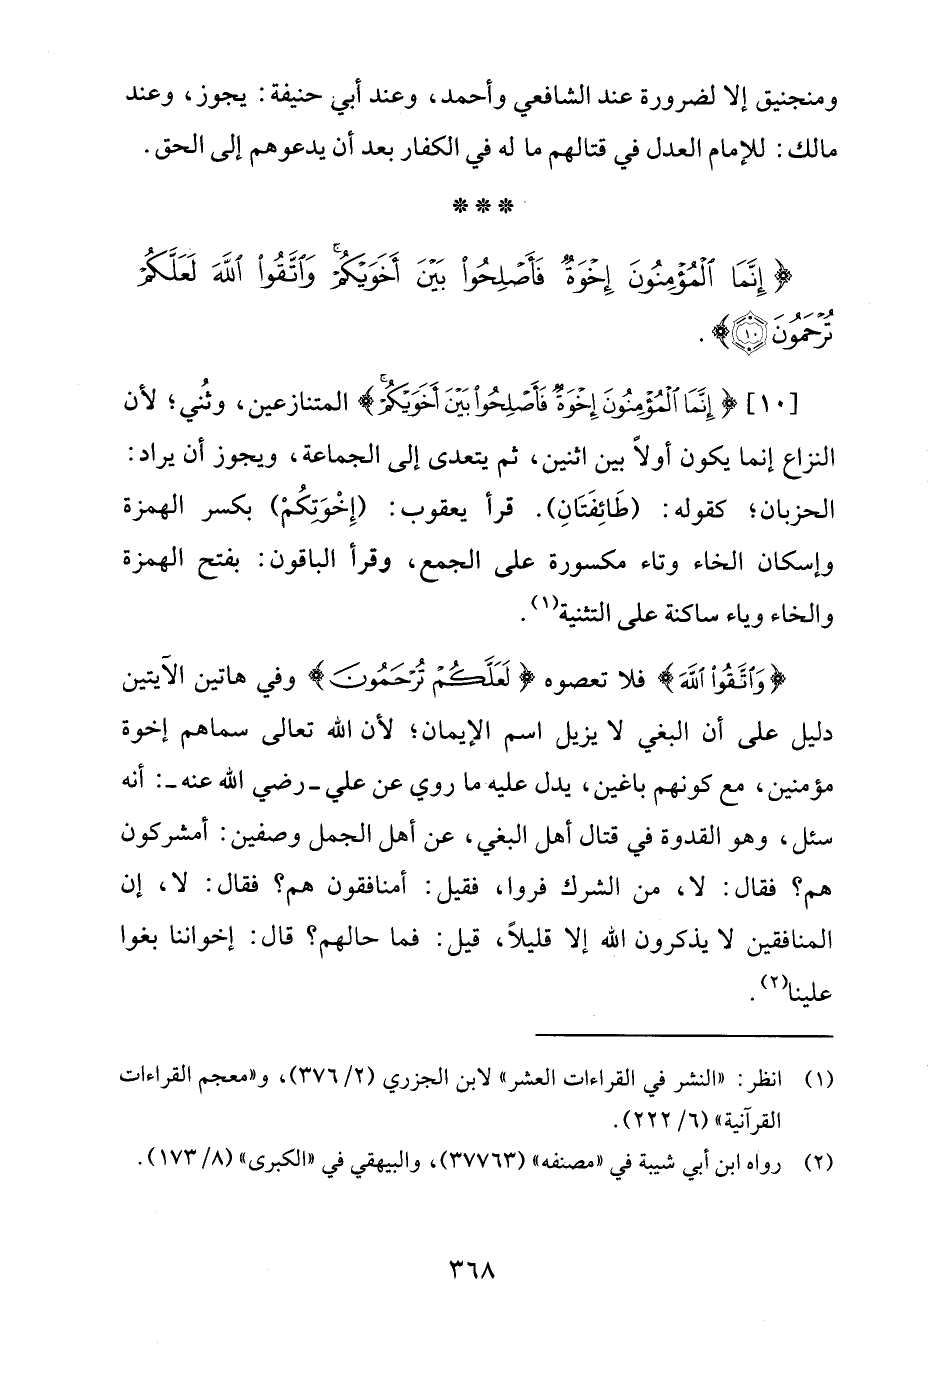 ومنجنيق إلا لضرورة عند الشافعي وأحمد، وعند أبي حنيفة: يجوز، وعند
مالك: للإمام العدل في قتالهم ما له في الكفار بعد أن يدعوهم إلى الحق.
***
﴿ إِنَّمَا ٱلْمُؤْمِنُونَ إِخْوَةٌ فَأَصْلِحُوا۟ بَيْنَ أَخَوَيْكُمْ ۚ وَٱتَّقُوا۟ ٱللَّهَ لَعَلَّكُمْ
تُرْحَمُونَ ۝١٠﴾.
[١٠] ﴿ إِنَّمَا ٱلْمُؤْمِنُونَ إِخْوَةٌ فَأَصْلِحُوا۟ بَيْنَ أَخَوَيْكُمْ ۚ﴾ المتنازعين، وثُني؛ لأن
النزاع إنما يكون أولاً بين اثنين، ثم يتعدى إلى الجماعة، ويجوز أن يراد:
الحزبان؛ كقوله: (طَائِفَتَانِ). قرأ يعقوب: (إِخْوَتِكُمْ) بكسر الهمزة
وإسكان الخاء وتاء مكسورة على الجمع، وقرأ الباقون: بفتح الهمزة
والخاء وياء ساكنة على التثنية(١).
﴿ وَٱتَّقُوا۟ ٱللَّهَ ﴾ فلا تعصوه ﴿ لَعَلَّكُمْ تُرْحَمُونَ ﴾ وفي هاتين الآيتين
دليل على أن البغي لا يزيل اسم الإيمان؛ لأن الله تعالى سماهم إخوة
مؤمنين، مع كونهم باغين، يدل عليه ما روي عن علي ـ رضي الله عنه ـ: أنه
سئل، وهو القدوة في قتال أهل البغي، عن أهل الجمل وصفين: أمشركون
هم؟ فقال: لا، من الشرك فروا، فقيل: أمنافقون هم؟ فقال: لا، إن
المنافقين لا يذكرون الله إلا قليلاً، قيل: فما حالهم؟ قال: إخواننا بغوا
علينا(٢).
(١) انظر: «النشر في القراءات العشر» لابن الجزري (٢/ ٣٧٦)، و«معجم القراءات
القرآنية» (٦/ ٢٢٢).
(٢) رواه ابن أبي شيبة في «مصنفه» (٣٧٧٦٣)، والبيهقي في «الكبرى» (٨/ ١٧٣).
٣٦٨